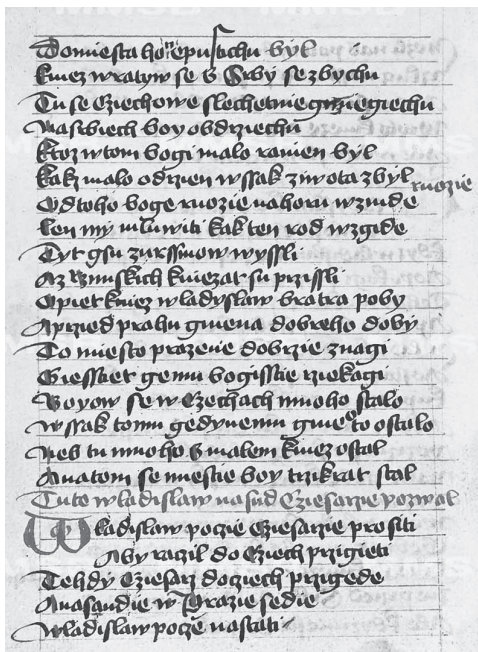 Domiesta hory epustichu byl
kniez wratyw se s Srby sezbychu
Tu se Cziechowe slechetnie giegiechu
Nasrbiech boy obdrziechu
ktoz wtom bogi malo ranien byl
kakz malo odrzien wssak ziwota zbyl
Odtoho boge ruozie nahoru wznide ruozie
len my mluwiti kak ten rod wzgide
Tyt gsu zurssinow wyssli
Az Rzimskich kniezat su przissli
Opiet kniez wladyslaw bratra poby
Aprzied prahu gmena dobreho doby
To miesto prazene dobrzie znagi
Giessiet gemu bogisstie rziekagi
Boyow se w Czechach mnoho stalo
wssak tomu gedynemu gmeno to ostalo
Neb tu mnoho s malem kniez ostal
Anatom se miestie boy trzikrat stal
Tuto wladislaw nasud Cziesarzie pozwal
Wladislaw poczie Cziesarzie prositi
Aby raczil do Cziech przigieti
Tehdy Cziesarz docziech przigede
Anasandie w Prazie sedie
Wladislaw pocze nastati